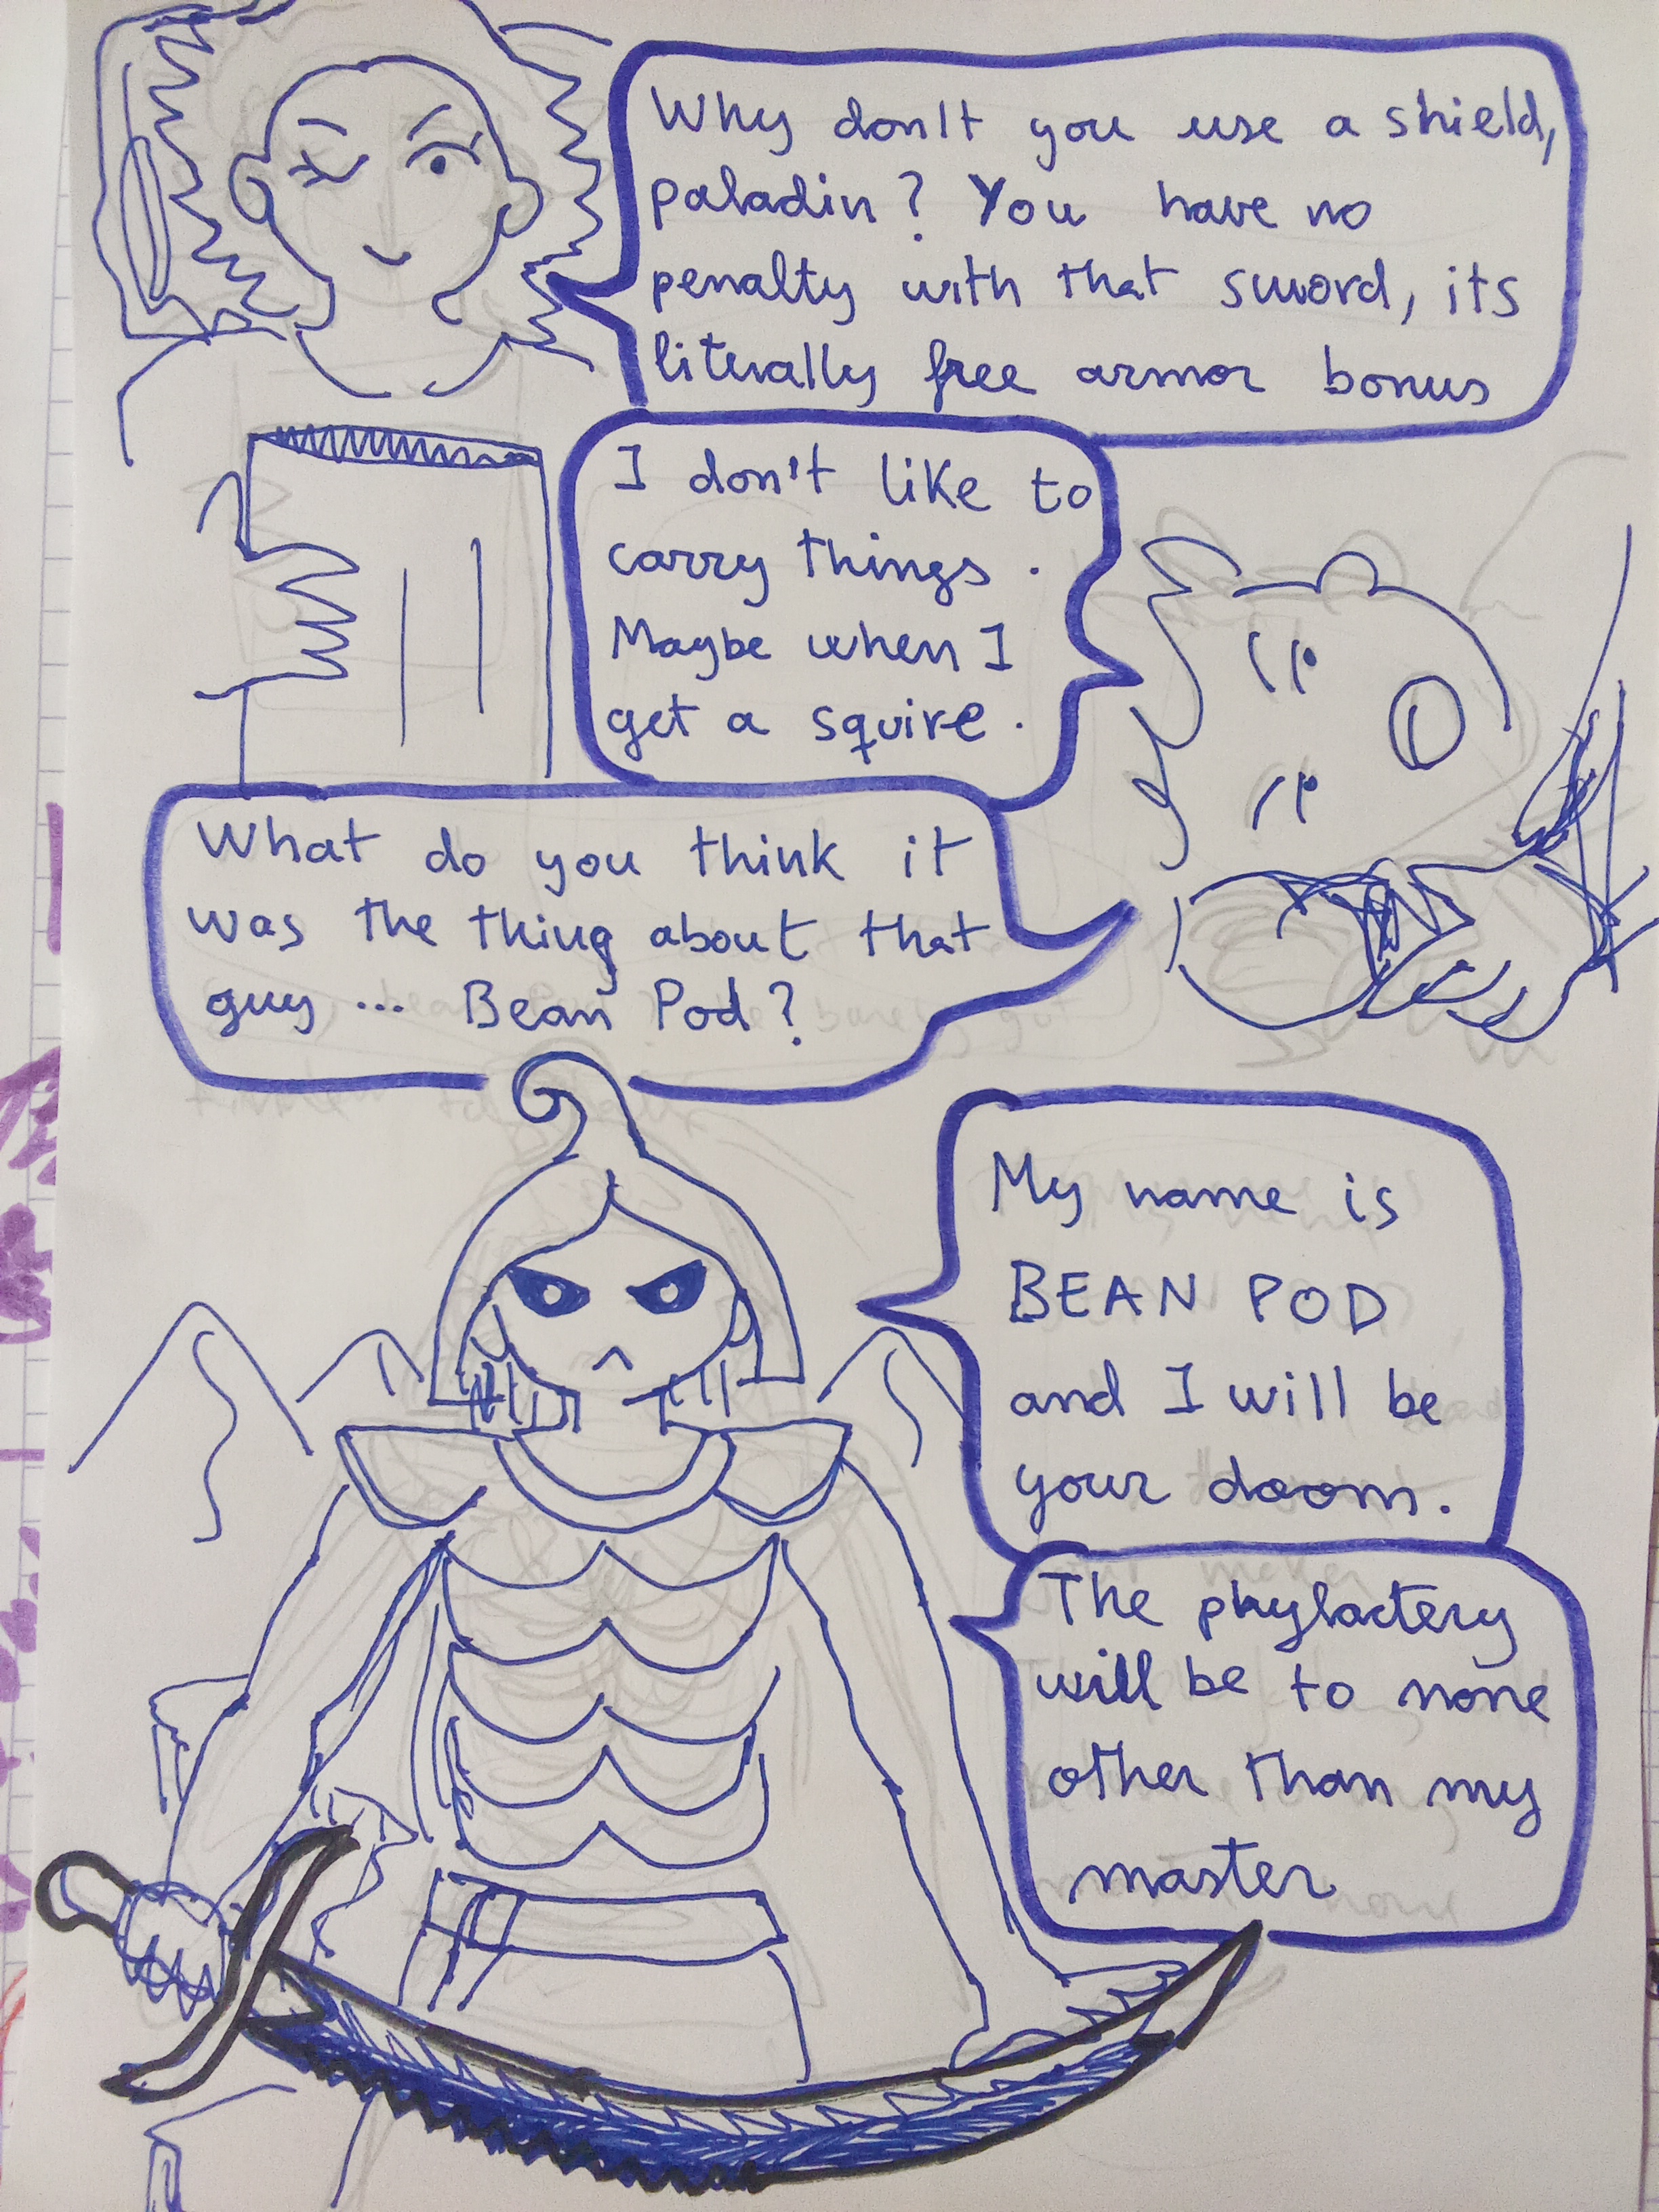 Why don't you use a shield,
paladin? You have no
penalty with that sword, its
literally free armor bonus
I don't like to
carry things.
Maybe when I
get a squire.
What do you think it
was the thing about that
guy... Bean Pod?
My name is
BEAN POD
and I will be
your doom.
The phylactery
will be to none
other than my
master